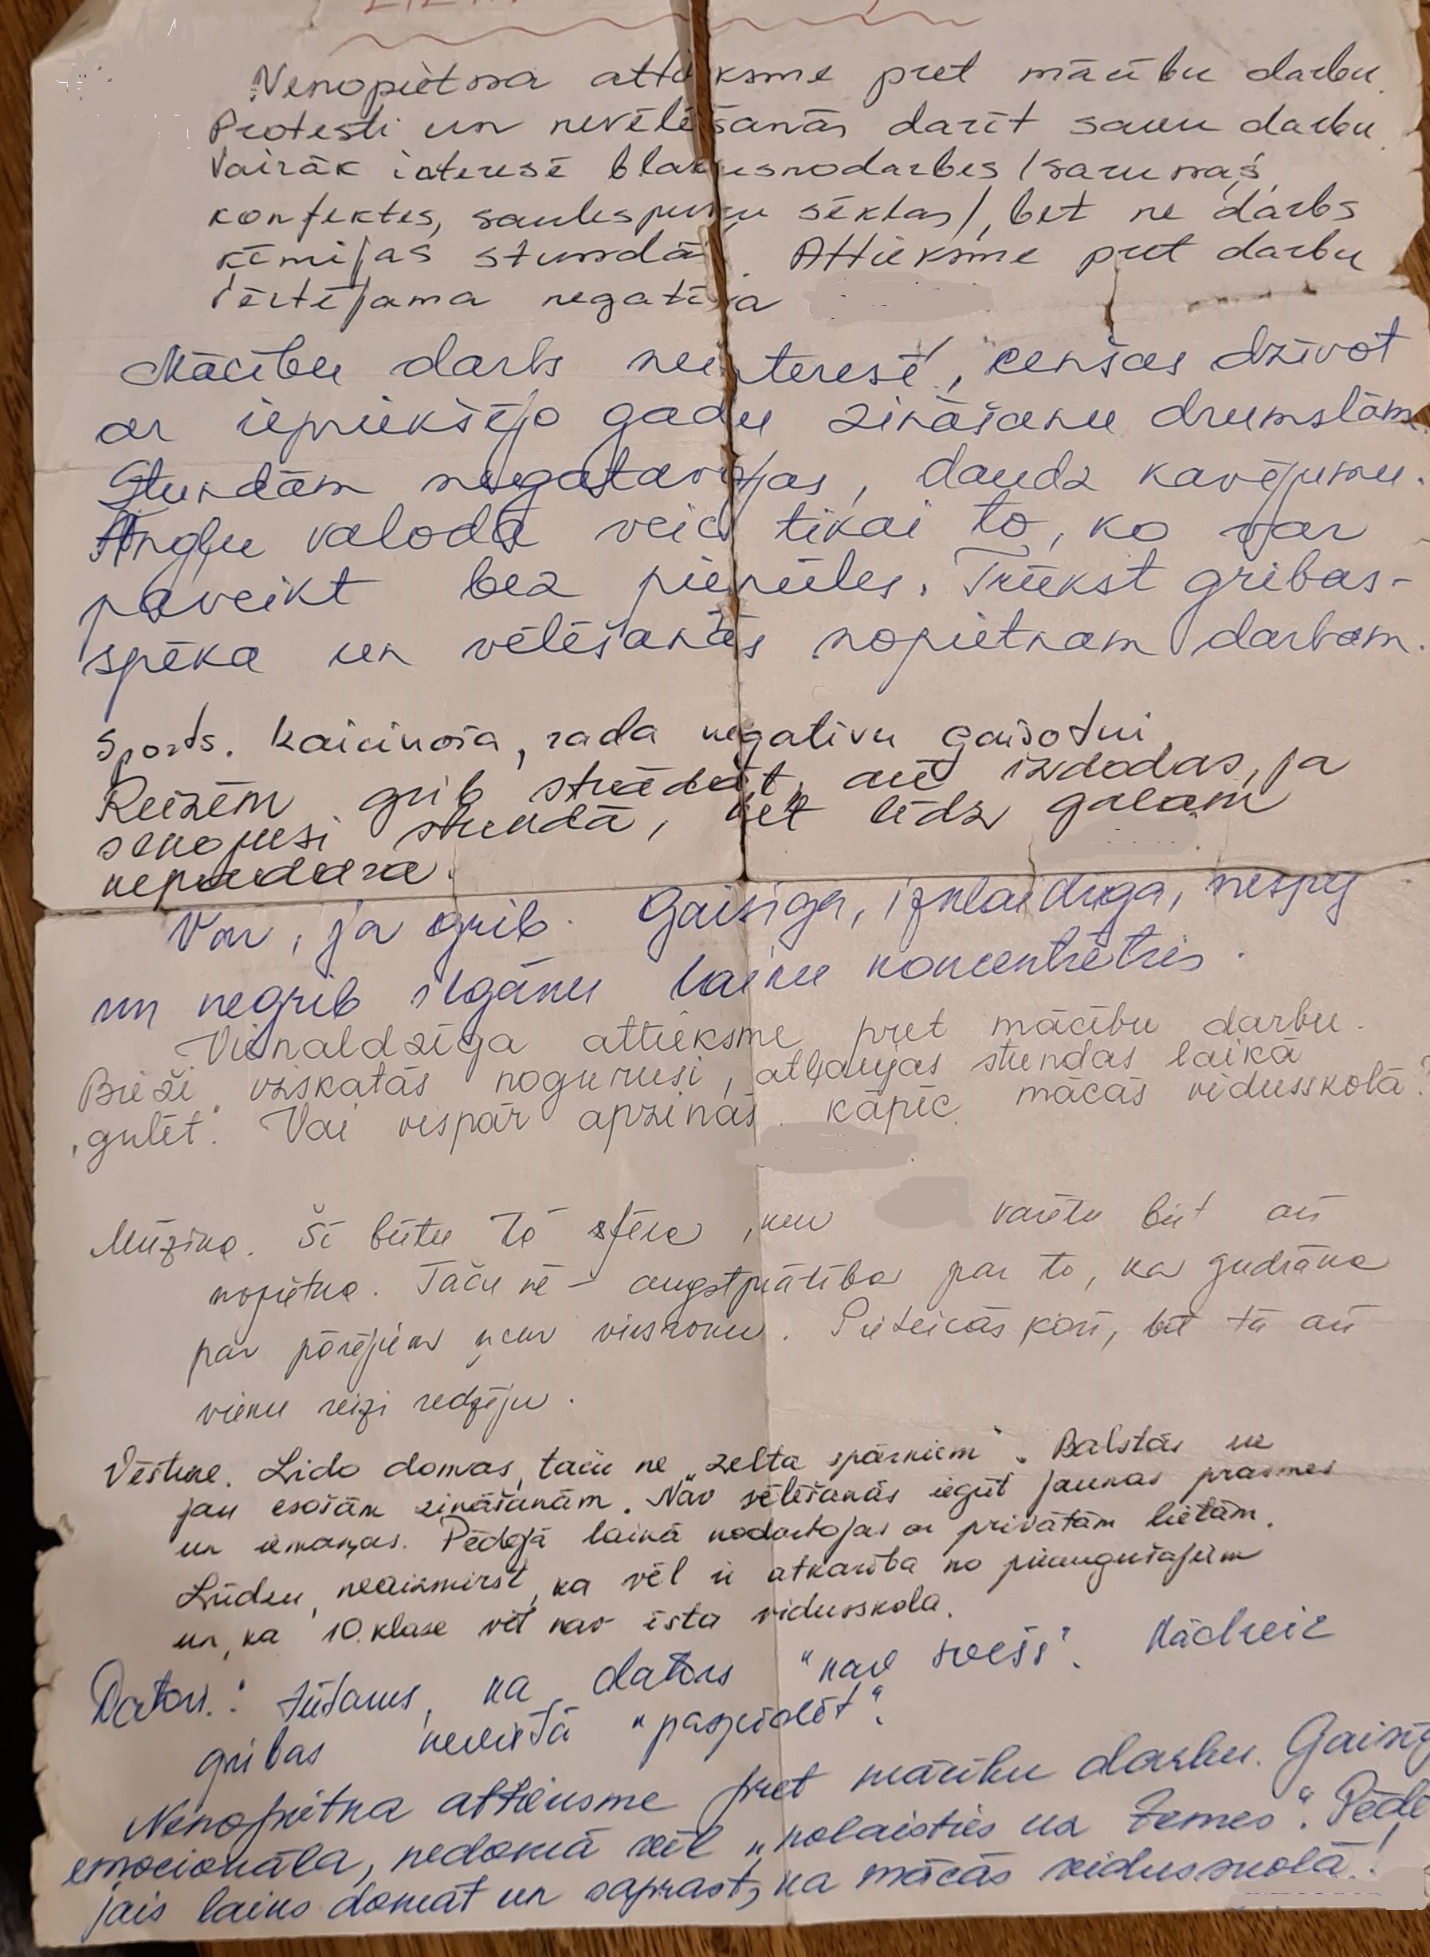 Nenopietna attieksme pret mācību darbu.
Protesti un nevēlēšanās darīt savu darbu.
Vairāk interesē blakusnodarbes /sarunas,
konfektes, saulespuķu sēklas/, bet ne darbs
ķīmijas stundā. Attieksme pret darbu
vērtējama negatīva
Mācību darbs neinteresē, cenšas dzīvot
ar iepriekšējo gadu zināšanu drumslām.
Stundām negatavojas, daudz kavējumu.
Angļu valodā veic tikai to, ko var
paveikt bez piepūles. Trūkst gribas-
spēka un vēlēšanās nopietnam darbam.
Sports. kaicinoša, rada negatīvu gaisotni
Reizēm grib strādāt, arī izdodas, ja
stundā, bet līdz galam
nepadara.
Var, ja grib. Gaisīga, izklaidīga, nespēj
un negrib ilgāku laiku koncentrēties.
Vienaldzīga attieksme pret mācību darbu.
Bieži izskatās nogurusi, atļaujas stundas laikā
"gulēt". Vai vispār apzinās kāpēc mācās vidusskolā?
Mūzika. Šī būtu tā sfēra, kur varētu būt arī
nopietna. Taču nē – augstprātība par to, ka gudrāka
par pārējiem ņem virsroku. Pieteicās korī, bet tā arī
vienu reizi redzēju.
Vēsture. Lido domas, taču ne "zelta spārniem". Balstās uz
jau esošām zināšanām. Nav vēlēšanās iegūt jaunas prasmes
un iemaņas. Pēdējā laikā nodarbojas ar privātām lietām.
Lūdzu, neaizmirst, ka vēl ir atkarība no pieaugušajiem
un, ka 10. klase vēl nav īsta vidusskola.
Dators.: jūtams, ka dators "nav svešs". Kādreiz
gribas nevietā "paspēlēt".
Nenopietna attieksme pret mācību darbu. Gaisīg
emocionāla, nedomā vēl "nolaisties uz zemes". Pēdē
jais laiks domāt un saprast, ka mācās vidusskolā!